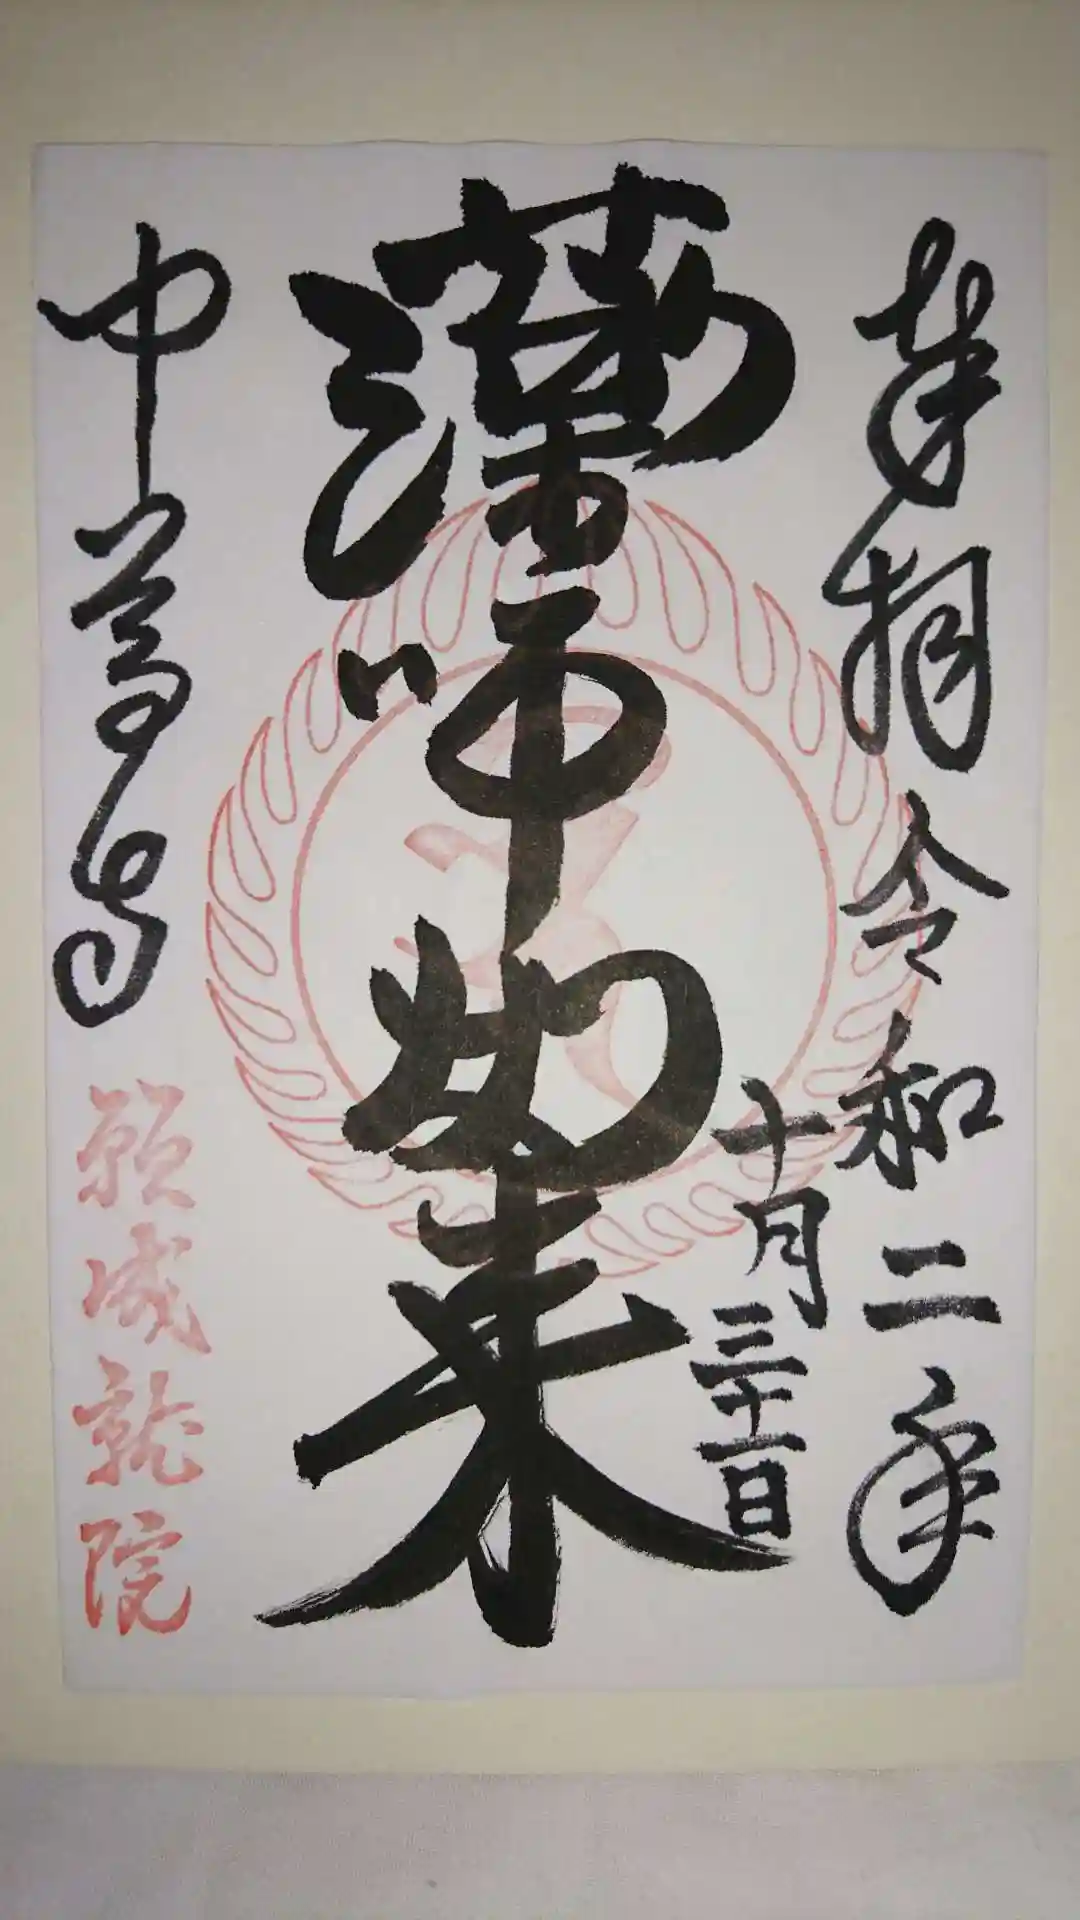 奉拝 令和二年
十月三十一日
薬師如来
中尊寺
願成就院